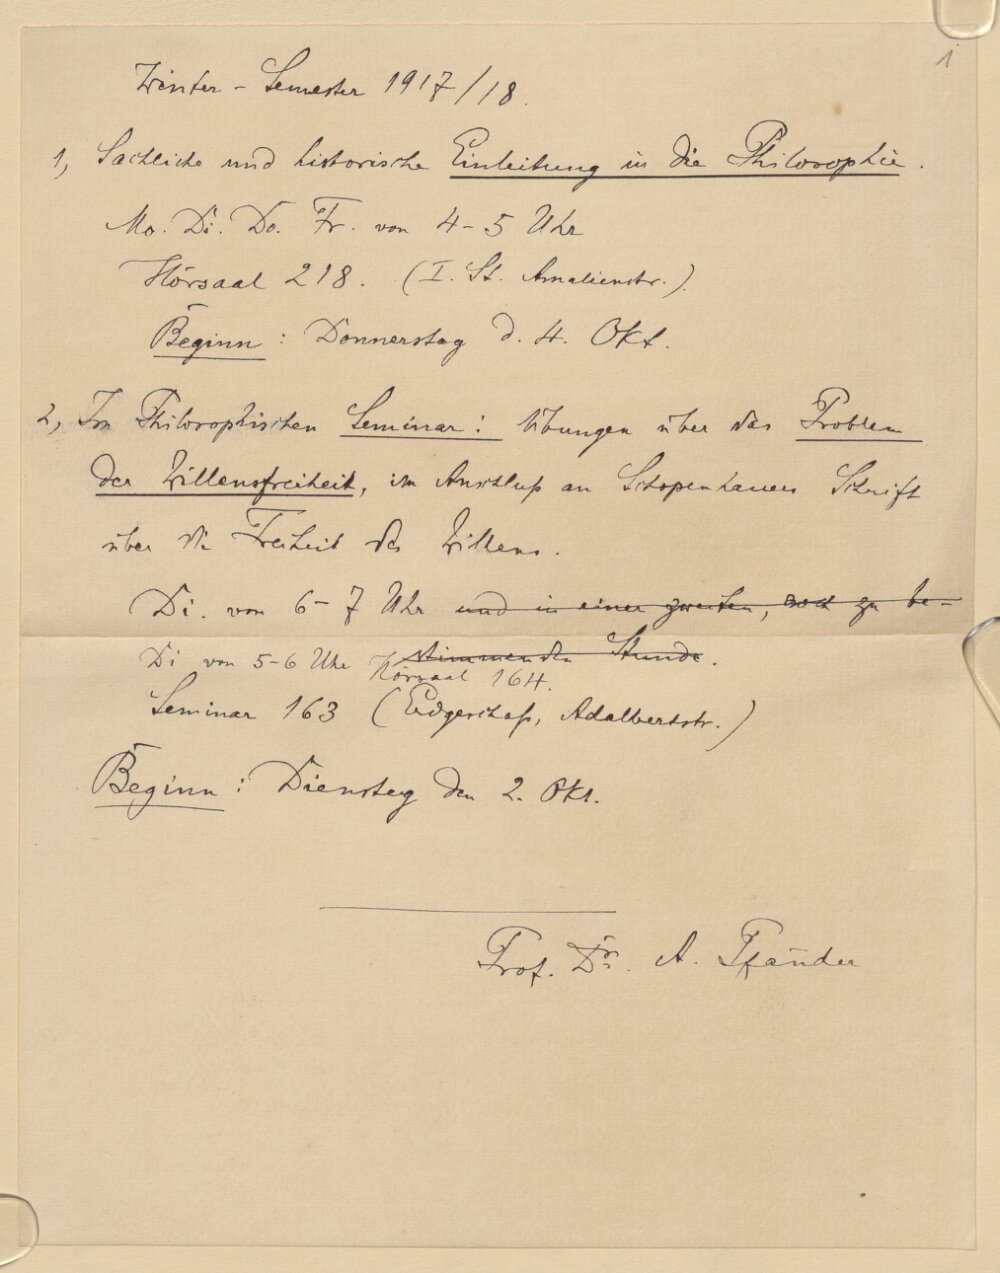 1
Winter-Semester 1917/18.
1, Sachliche und historische Einleitung in die Philosophie.
Mo. Di. Do. Fr. von 4-5 Uhr
Hörsaal 218. (I. St. Amalienstr.).
Beginn: Donnerstag d. 4. Okt.
2, Im Philosophischen Seminar: Übungen über das Problem
der Willensfreiheit, im Anschluß an Schopenhauers Schrift
über die Freiheit des Willens.
Di. von 6-7 Uhr und in einer zweiten, noch zu be-
stimmenden Stunde.
Di von 5-6 Uhr Hörsaal 164.
Seminar 163 (Erdgeschoß, Adalbertstr.)
Beginn: Dienstag den 2. Okt.
Prof. Dr. A. Pfänder